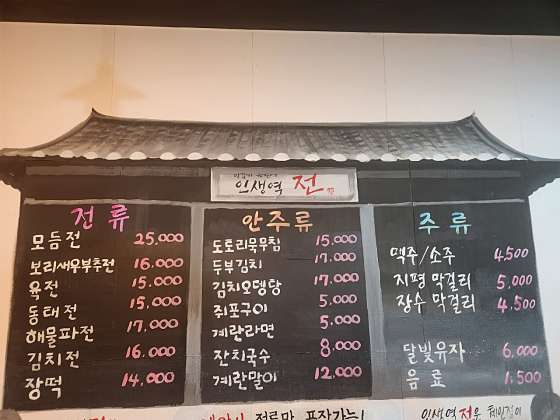 인생역 전
전류
모듬전 25,000
보리새우부추전 16,000
육전 15,000
동태전 15,000
해물파전 17,000
김치전 16,000
장떡 14,000
안주류
도토리묵무침 15,000
두부김치 17,000
김치오뎅탕 17,000
쥐포구이 5,000
계란라면 5,000
잔치국수 8,000
계란말이 12,000
주류
맥주/소주 4,500
지평 막걸리 5,000
장수 막걸리 4,500
달빛유자 6,000
음료 1,500
전류만 포장가능!
인생역전